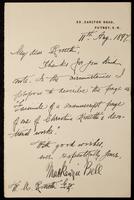 33, CARLTON ROAD,
PUTNEY, S.W.
11th Aug. 1897.
My dear Rossetti,
Thanks for your kind
note. In the
propose to describe the page as
"Facsimile of a manuscript page
of one of Christina Rossetti's
works."
With good wishes,
ever respectfully yours,
Mackenzie Bell
W. M. Rossetti Esq.